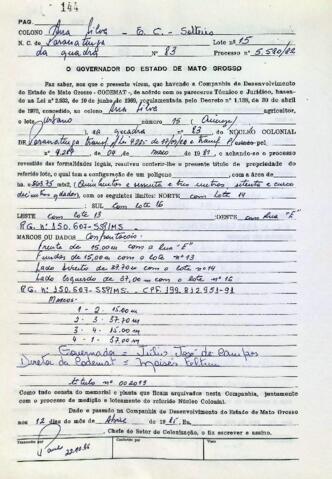 144
PAG.
COLONO Ana Silva - E. C. - Solteira
N. C. de Paranatinga Lote nº 15
da quadra nº 83 Processo nº 5.590/82
O GOVERNADOR DO ESTADO DE MATO GROSSO
Faz saber, aos que o presente título virem, que havendo a Companhia de Desenvolvimento
do Estado de Mato Grosso - CODEMAT -, de acordo com os pareceres Técnico e Jurídico, basea-
dos na Lei nº 2.933, de 19 de junho de 1969, regulamentada pelo Decreto nº 1.138, de 30 de abril
de 1973, concedido, ao colono Ana Silva agricultor,
o lote urbano número 15 (Quinze)
da quadra nº 83 DO NÚCLEO COLONIAL
DE Paranatinga
nº 9.289 de 04 de maio de 1981, e achando-se o processo
revestido das formalidades legais, resolveu conferir-lhe o presente título de propriedade do
referido lote, o qual tem a configuração de um polígono com a área de
(Quinhentos e sessenta e três metros setenta e cinco
decímetros quadrados) com os seguintes limites: NORTE com lote 14
SUL com lote 16
LESTE com lote 13 OESTE com Rua "E"
R.G. Nº 150.607-SSP/MS.
MARCOS OU DADOS Confrontações:
Frente de 15,00m com a Rua "E"
Fundos de 15,00m com o lote nº 13
Lado Direito de 37.70m com o lote nº 14
Lado Esquerdo de 37.00m com o lote nº 16
R.G. Nº 150.607-SSP/MS. - CPF. 199.812.951-91
Marcos:
1 - 2 - 15.00m
2 - 3 - 37.70m
3 - 4 - 15.00m
4 - 1 - 37.00m
Governador = Júlio José de Campos
Diretor da Codemat = Moisés Feltrin
título nº 002013
Como tudo consta do memorial e planta que ficam arquivados nesta Companhia, juntamente
com o processo de medição e loteamento do referido Núcleo Colonial.
Dado e passado na Companhia de Desenvolvimento do Estado de Mato Grosso
aos 12 dias do mês de Abril de 1985. Eu,
, Chefe do Setor de Colonização, o fiz escrever e assino.
Transcrito por Conferido por Visto
22.10.86